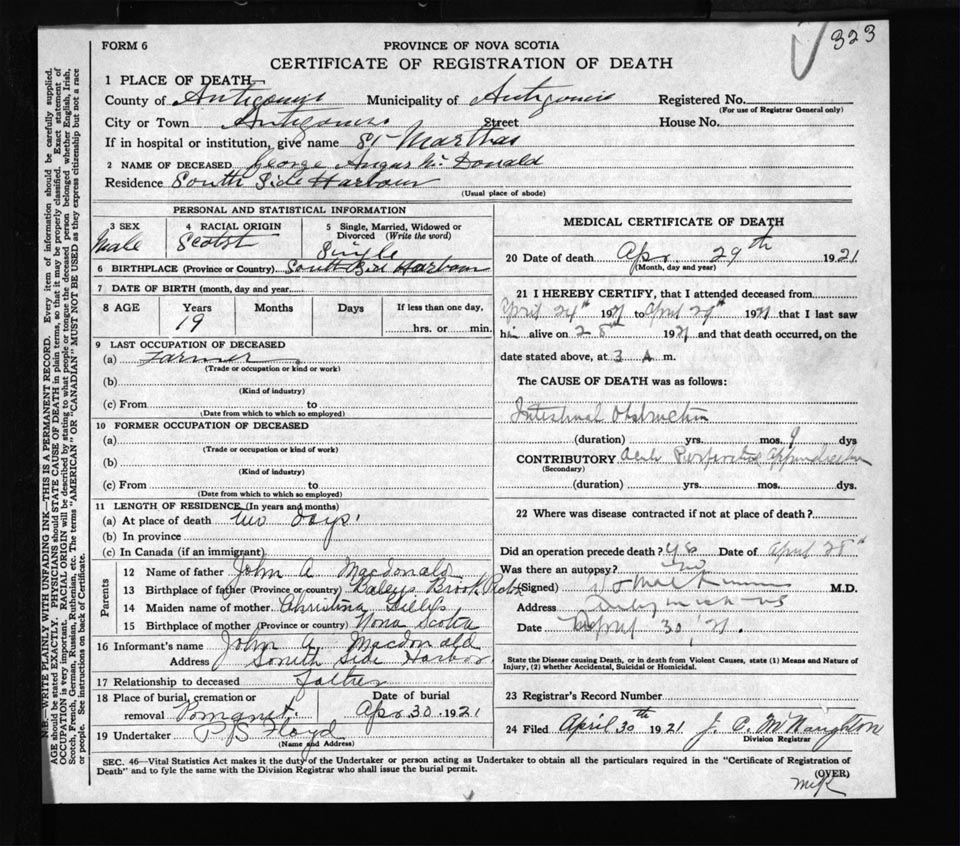 323
FORM 6
PROVINCE OF NOVA SCOTIA
CERTIFICATE OF REGISTRATION OF DEATH
1 PLACE OF DEATH—
County of Antigonis Municipality of Antigonis Registered No.
(For use of Registrar General only)
City or Town Antigonis Street House No.
If in hospital or institution, give name St Marthas
2 NAME OF DECEASED George Angus McDonald
Residence South Side Harbour
(Usual place of abode)
PERSONAL AND STATISTICAL INFORMATION
3 SEX
Male
4 RACIAL ORIGIN
Scotst
5 Single, Married, Widowed or Divorced (Write the word)
Single
6 BIRTHPLACE (Province or Country) South Side Harbour
7 DATE OF BIRTH (month, day and year)
8 AGE Years Months Days If less than one day,
19 hrs. or min.
9 LAST OCCUPATION OF DECEASED
(a) Farmer
(Trade or occupation or kind or work)
(b)
(Kind of industry)
(c) From to
(Date from which to which so employed)
10 FORMER OCCUPATION OF DECEASED
(a)
(Trade or occupation or kind of work)
(b)
(Kind of industry)
(c) From to
(Date from which to which so employed)
11 LENGTH OF RESIDENCE (In years and months)
(a) At place of death two days
(b) In province
(c) In Canada (if an immigrant)
Parents
12 Name of father John A Macdonald
13 Birthplace of father (Province or country) Baleys Brook Pictou
14 Maiden name of mother Christina Gillis
15 Birthplace of mother (Province or country) Nova Scotia
16 Informant's name John A. Macdonald
Address South Side Harbor
17 Relationship to deceased father
18 Place of burial, cremation or Date of burial
removal Pomquet Apr 30 1921
19 Undertaker P B Floyd
(Name and Address)
MEDICAL CERTIFICATE OF DEATH
20 Date of death Apr. 29th 1921
(Month, day and year)
21 I HEREBY CERTIFY, that I attended deceased from
April 24th 1921 to April 29th 1921 that I last saw
him alive on 28th 1921 and that death occurred, on the
date stated above, at 3 A m.
The CAUSE OF DEATH was as follows:
Intestinal Obstruction
(duration) yrs. mos. 9 dys
CONTRIBUTORY Acute Perforative Appendicitis
(Secondary)
(duration) yrs. mos. dys.
22 Where was disease contracted if not at place of death?
Did an operation precede death? Yes Date of April 25th
Was there an autopsy? no
(Signed) M.D.
Address
Date April 30, 21.
State the Disease causing Death, or in death from Violent Causes, state (1) Means and Nature of
Injury, (2) whether Accidental, Suicidal or Homicidal.
23 Registrar's Record Number
24 Filed April 30th 1921 J. C. McNaughton
Division Registrar
SEC. 46—Vital Statistics Act makes it the duty of the Undertaker or person acting as Undertaker to obtain all the particulars required in the "Certificate of Registration of
Death" and to fyle the same with the Division Registrar who shall issue the burial permit.
(OVER)
N.B.—WRITE PLAINLY WITH UNFADING INK—THIS IS A PERMANENT RECORD. Every item of information should be carefully supplied.
AGE should be stated EXACTLY. PHYSICIANS should STATE CAUSE OF DEATH in plain terms, so that it may be properly classified. Exact statement of
OCCUPATION is very important. RACIAL ORIGIN will be described by stating to what people or tongue the deceased person belonged whether English, Irish,
Scotch, French, German, Russian, Ruthenian, etc. The terms "AMERICAN" OR "CANADIAN" MUST NOT BE USED as they express citizenship but not a race
or people. See instructions on back of Certificate.